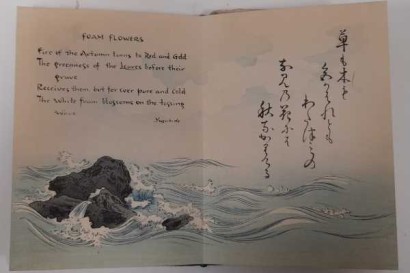 FOAM FLOWERS
Fire of the Autumn turns to Red and Gold
The greenness of the leaves before their
grave
Receives them, but for ever pure and Cold
The White foam blossoms on the tossing
wave
Yasuhide
草も木も
色かはれども
わたつ
花にぞ
秋なかりける